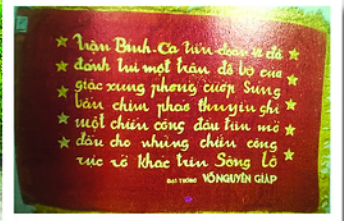 Trận Bình-Ca tiểu đoàn 42 đã
đánh lui một trận đổ bộ của
giặc xung phong cướp súng
bắn chìm pháo thuyền ghi
một chiến công đầu tiên mở
đầu cho những chiến công
rực rỡ khác trên Sông Lô
ĐẠI TƯỚNG VÕ NGUYÊN GIÁP